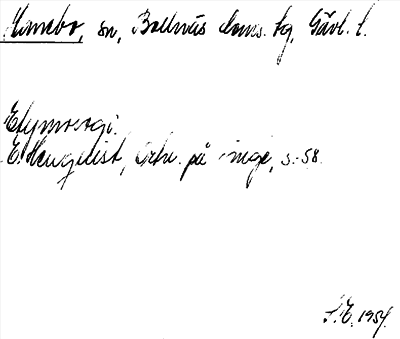 Homebo, sn, Bollnäs doms. tg, Gävl. l.
Etymologi.
E. Hengelist, Ortn. på inge, s. 58.
S.E. 1954.